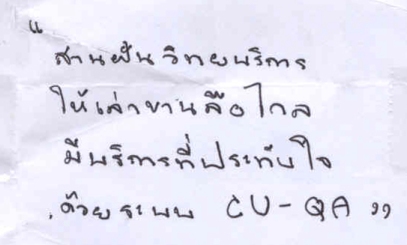 "สานฝันวิทยบริการ
ให้เล่าขานลือไกล
มีบริการที่ประทับใจ
ด้วยระบบ CU-QA "